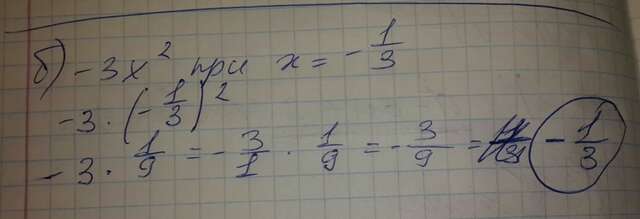 б) -3x² при x = -1/3
-3 · (-1/3)²
-3 · 1/9 = -3/1 · 1/9 = -3/9 = -1/3